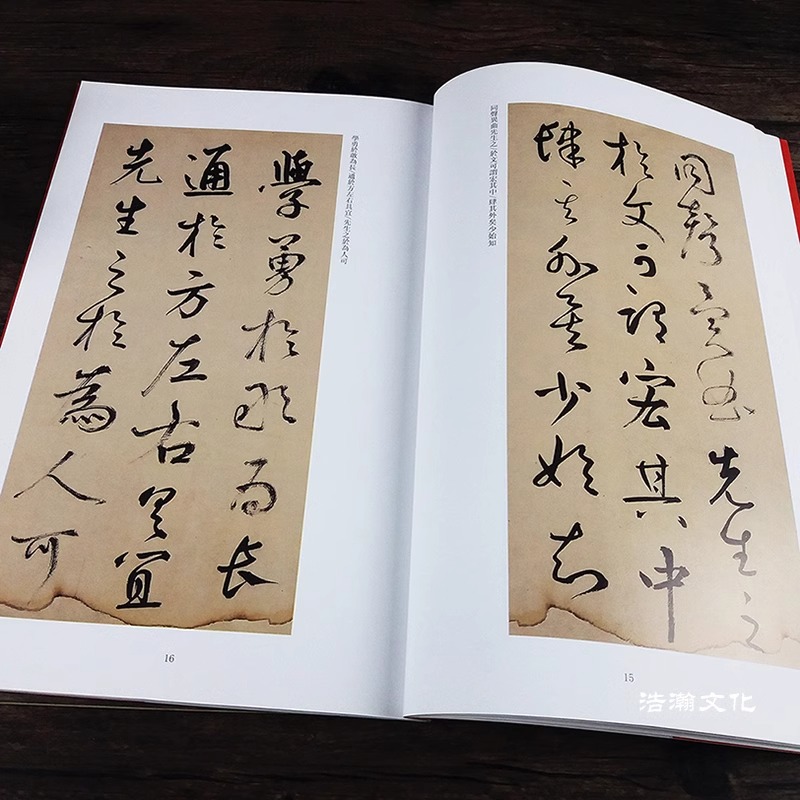 同聲異曲先生之
於文可謂宏其中
肆其外矣少始知
同聲異曲先生之於文可謂宏其中肆其外矣少始知
15
學勇於敢為長通於方左右具宜先生之於為人可
學勇於敢為長
通於方左右具宜
先生之於為人可
16
浩瀚文化